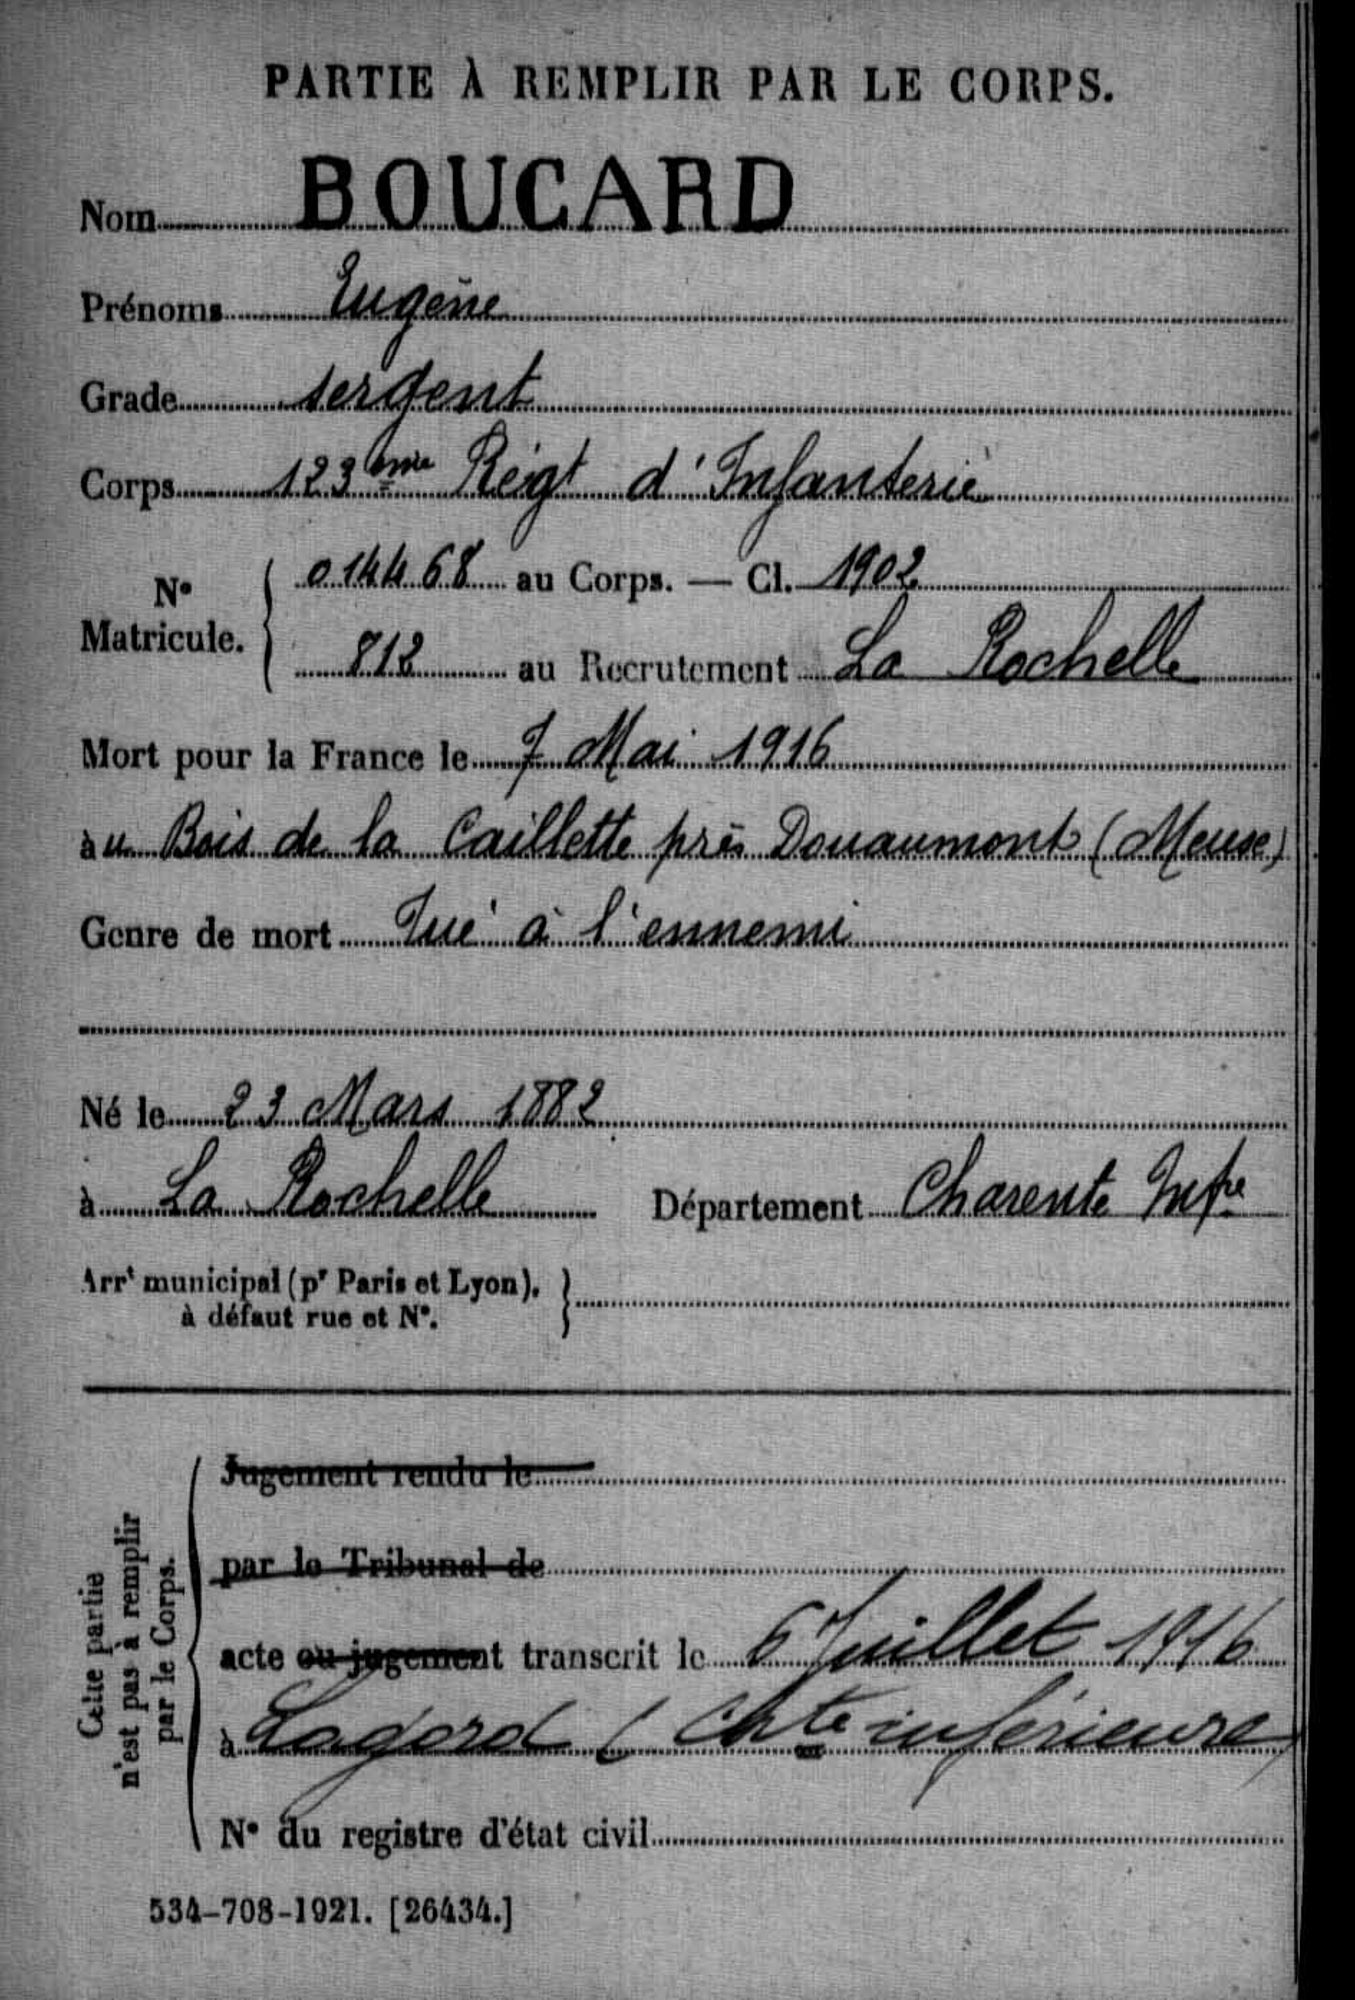 PARTIE À REMPLIR PAR LE CORPS.
Nom BOUCARD
Prénoms Eugène
Grade sergent
Corps 123ème Régt d'Infanterie
N° Matricule.
014468 au Corps. — Cl. 1902
812 au Recrutement La Rochelle
Mort pour la France le 7 Mai 1916
au Bois de la Caillette près Douaumont (Meuse)
Genre de mort Tué à l'ennemi
Né le 23 Mars 1882
à La Rochelle Département Charente Infre
Arrt municipal (pr Paris et Lyon),
à défaut rue et N°.
Cette partie
n'est pas à remplir
par le Corps.
Jugement rendu le
par le Tribunal de
acte ou jugement transcrit le 6 Juillet 1916
à Lagord (Chte inférieure)
N° du registre d'état civil
534-708-1921. [26434.]